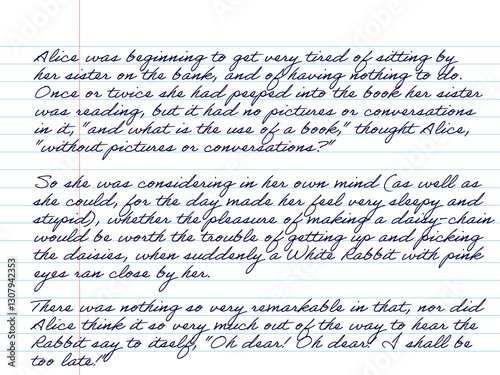 Alice was beginning to get very tired of sitting by
her sister on the bank, and of having nothing to do.
Once or twice she had peeped into the book her sister
was reading, but it had no pictures or conversations
in it, "and what is the use of a book," thought Alice,
"without pictures or conversations?"
So she was considering in her own mind (as well as
she could, for the day made her feel very sleepy and
stupid), whether the pleasure of making a daisy-chain
would be worth the trouble of getting up and picking
the daisies, when suddenly a White Rabbit with pink
eyes ran close by her.
There was nothing so very remarkable in that, nor did
Alice think it so very much out of the way to hear the
Rabbit say to itself, "Oh dear! Oh dear! I shall be
too late!"
Adobe Stock | #1307942353